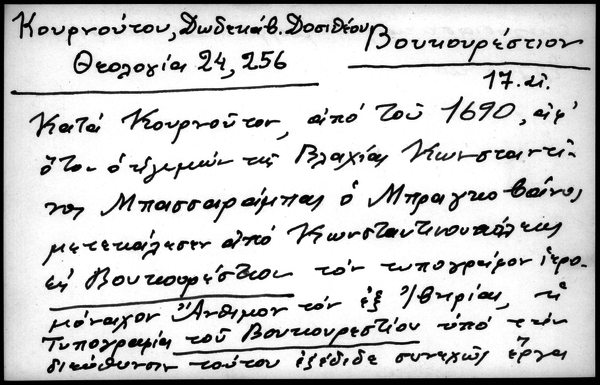 Κουρνούτου, Δωδεκάβ. Δοσιθέου
Θεολογία 24, 256
Βουκουρέστιον
17. αἰ.
Κατά Κουρνοῦτον, ἀπό τοῦ 1690, ἀφ'
ὅτου ὁ ἡγεμών τῆς Βλαχίας Κωνσταντῖ-
νος Μπασσαράμπας ὁ Μπραγκοβάνος
μετεκάλεσεν ἀπό Κωνσταντινουπόλεως
εἰς Βουκουρέστιον τόν τυπογράφον ἱερο-
μόναχον Ἄνθιμον τόν ἐξ Ἰβηρίας, ἡ
Τυπογραφία τοῦ Βουκουρεστίου ὑπό τήν
διεύθυνσιν τούτου ἐξέδιδε συνεχῶς ἔργα